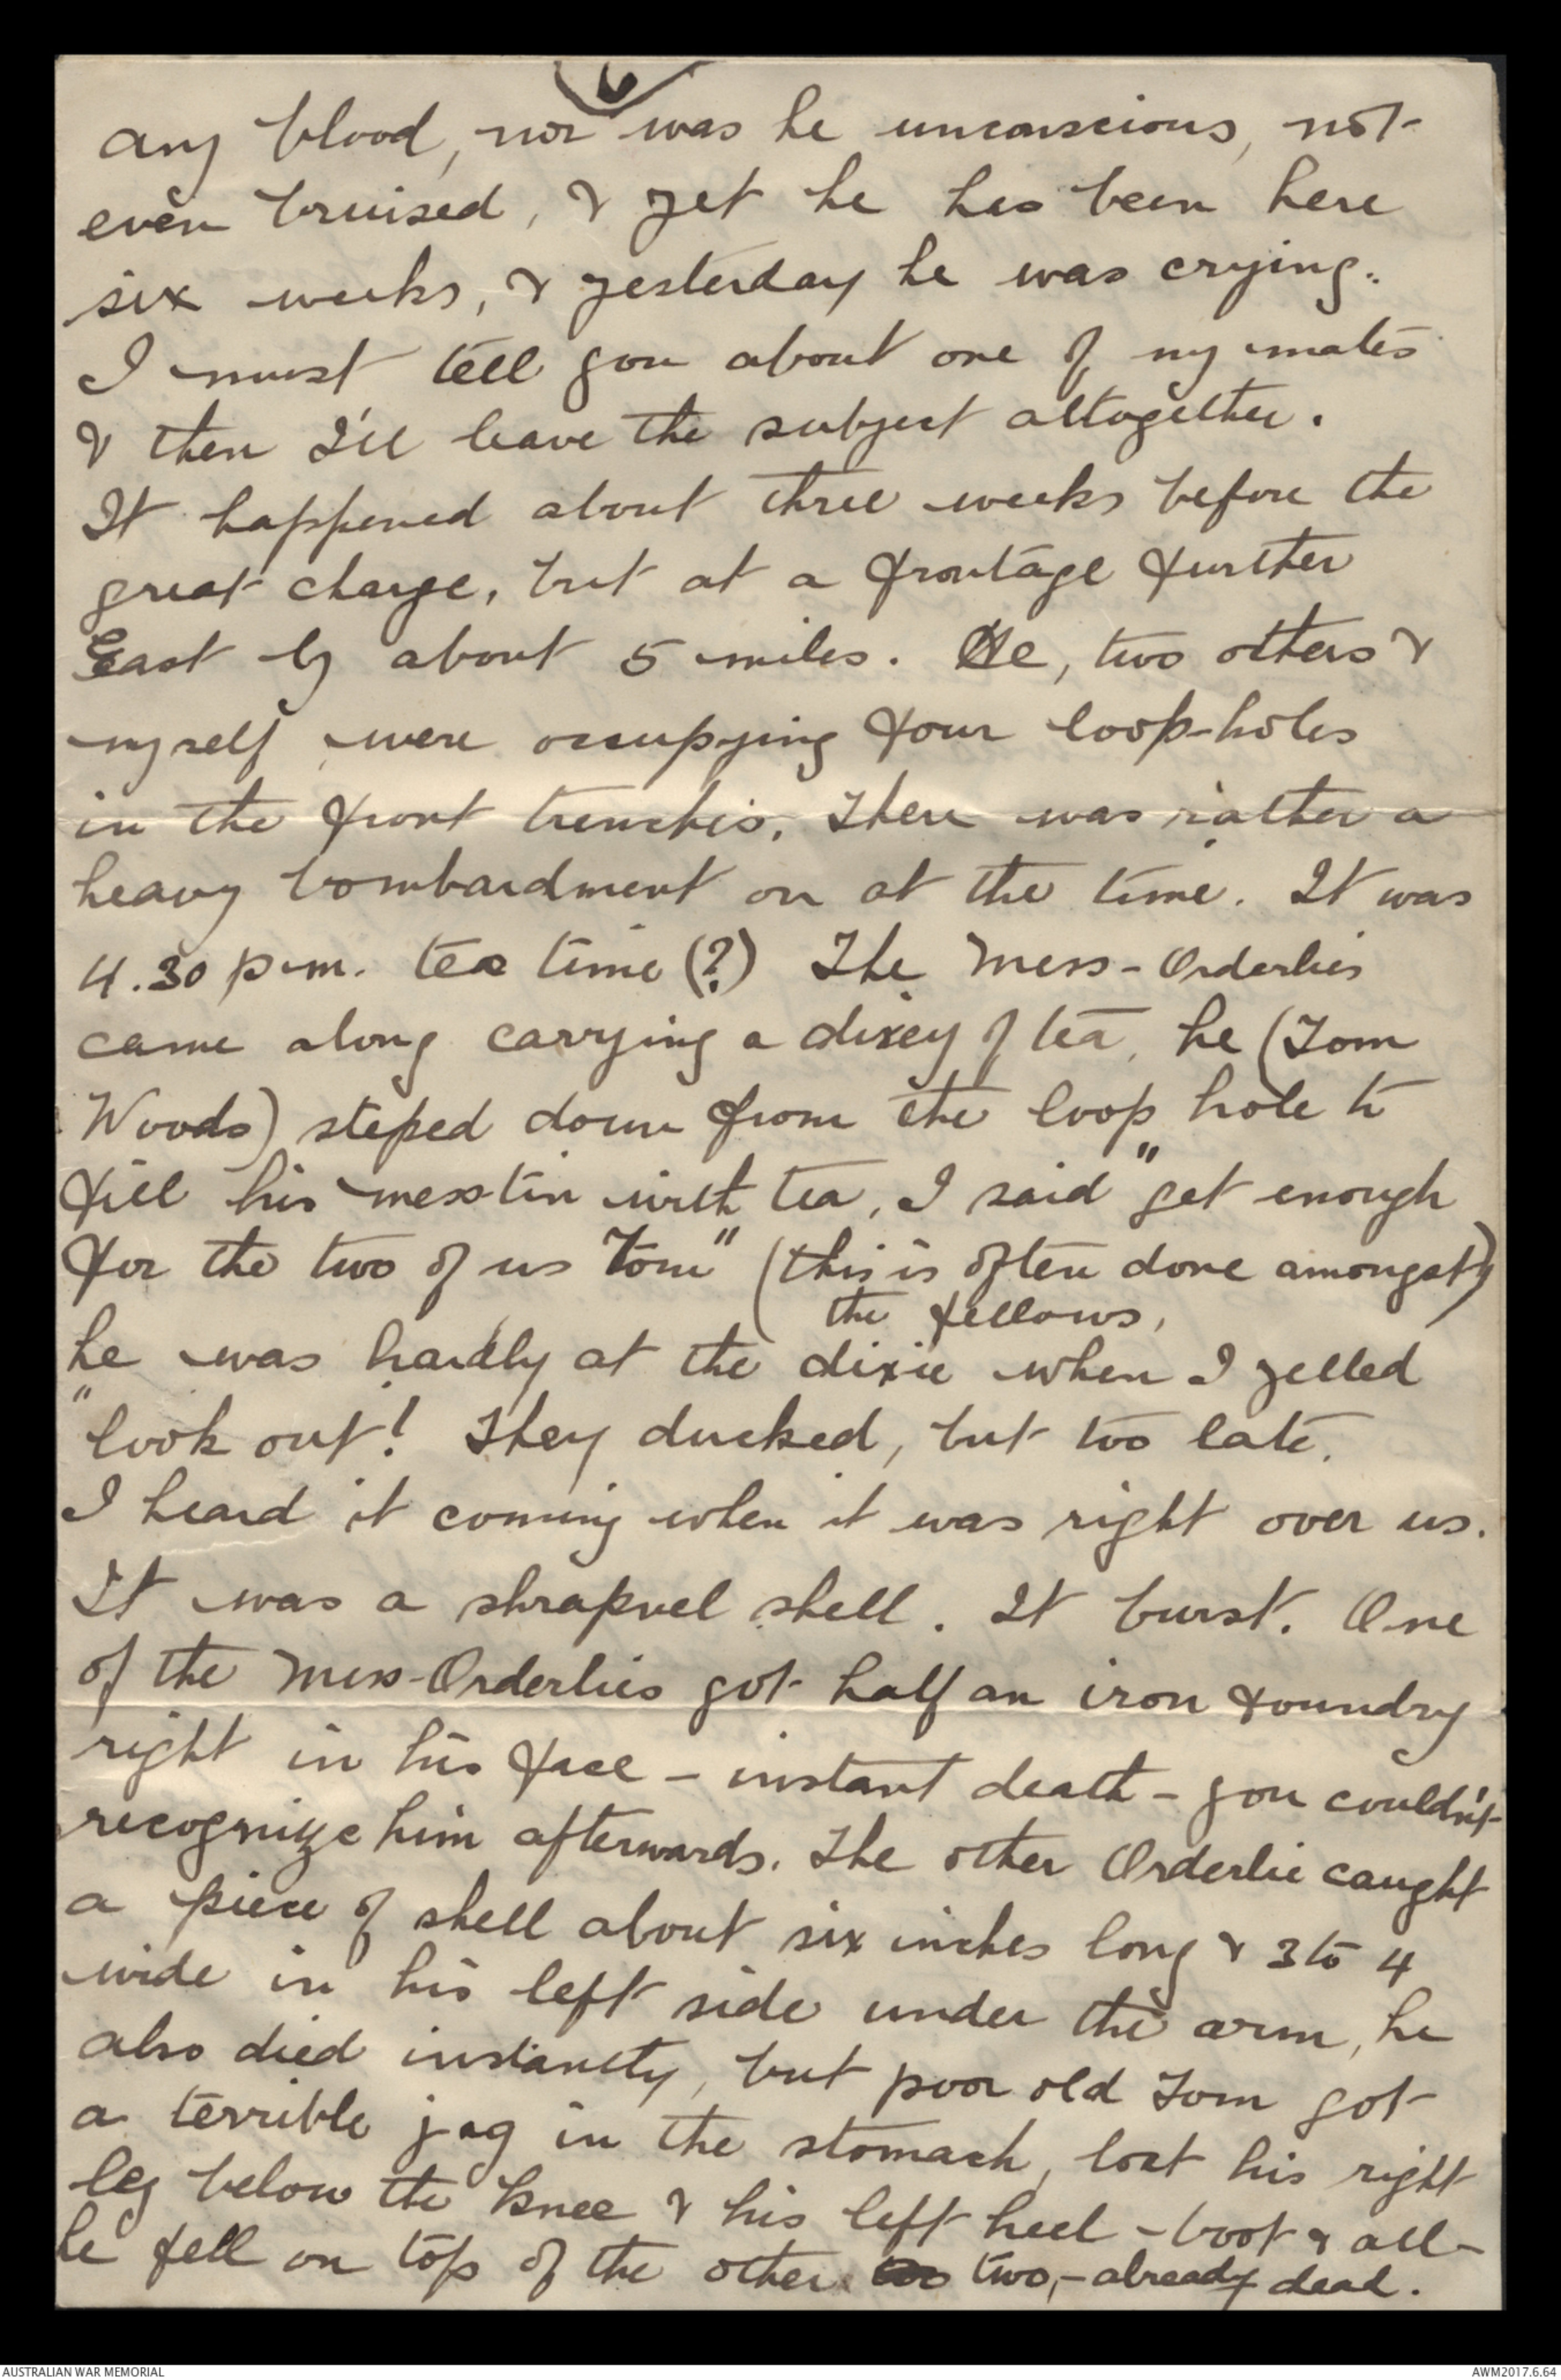 6
any blood, nor was he unconscious, not
even bruised, & yet he has been here
six weeks, & yesterday he was crying.
I must tell you about one of my mates
& then I'll leave the subject altogether.
It happened about three weeks before the
great charge, but at a frontage further
East by about 5 miles. He, two others &
myself were occupying four loop-holes
in the front trenches. There was rather a
heavy bombardment on at the time. It was
4.30 p.m. tea time (?) The Mess-Orderlies
came along carrying a dixey of tea, he (Tom
Woods) steped down from the loop hole to
fill his mess-tin with tea, I said "get enough
for the two of us Tom" (this is often done amongst)
the fellows,
he was hardly at the dixie when I yelled
"look out! They ducked, but too late.
I heard it coming when it was right over us.
It was a shrapnel shell. It burst. One
of the Mess-Orderlies got half an iron foundry
right in his face - instant death - you couldn't
recognize him afterwards. The other Orderlie caught
a piece of shell about six inches long & 3 to 4
wide in his left side under the arm, he
also died instantly, but poor old Tom got
a terrible jag in the stomach, lost his right
leg below the knee & his left heel - boot & all -
he fell on top of the other two, - already dead.
AUSTRALIAN WAR MEMORIAL
AWM2017.6.64